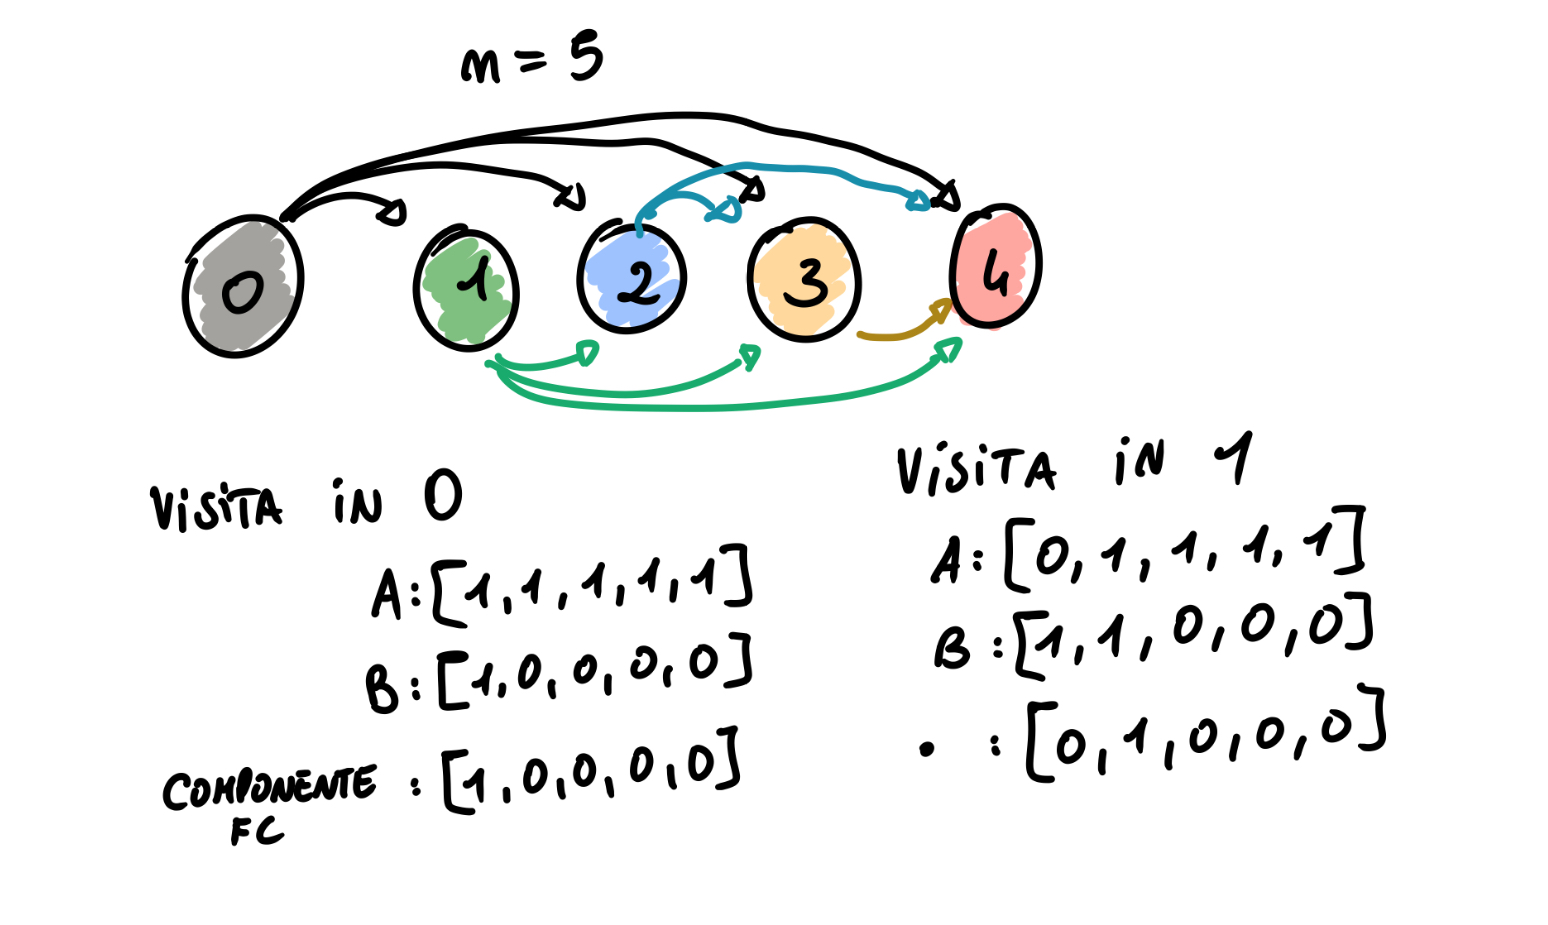 m = 5
0 1 2 3 4
VISITA IN 0
A: [1, 1, 1, 1, 1]
B: [1, 0, 0, 0, 0]
COMPONENTE : [1, 0, 0, 0, 0]
FC
VISITA IN 1
A: [0, 1, 1, 1, 1]
B : [1, 1, 0, 0, 0]
• : [0, 1, 0, 0, 0]